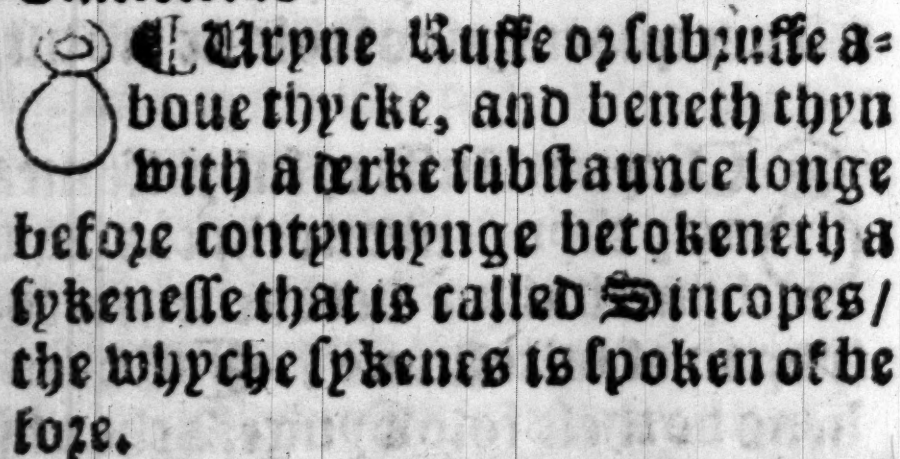 ¶ Uryne Ruffe or subruffe a=
boue thycke, and beneth thyn
with a derke substaunce longe
before contynuynge betokeneth a
sykenesse that is called Sincopes /
the whyche sykenes is spoken of be
fore.